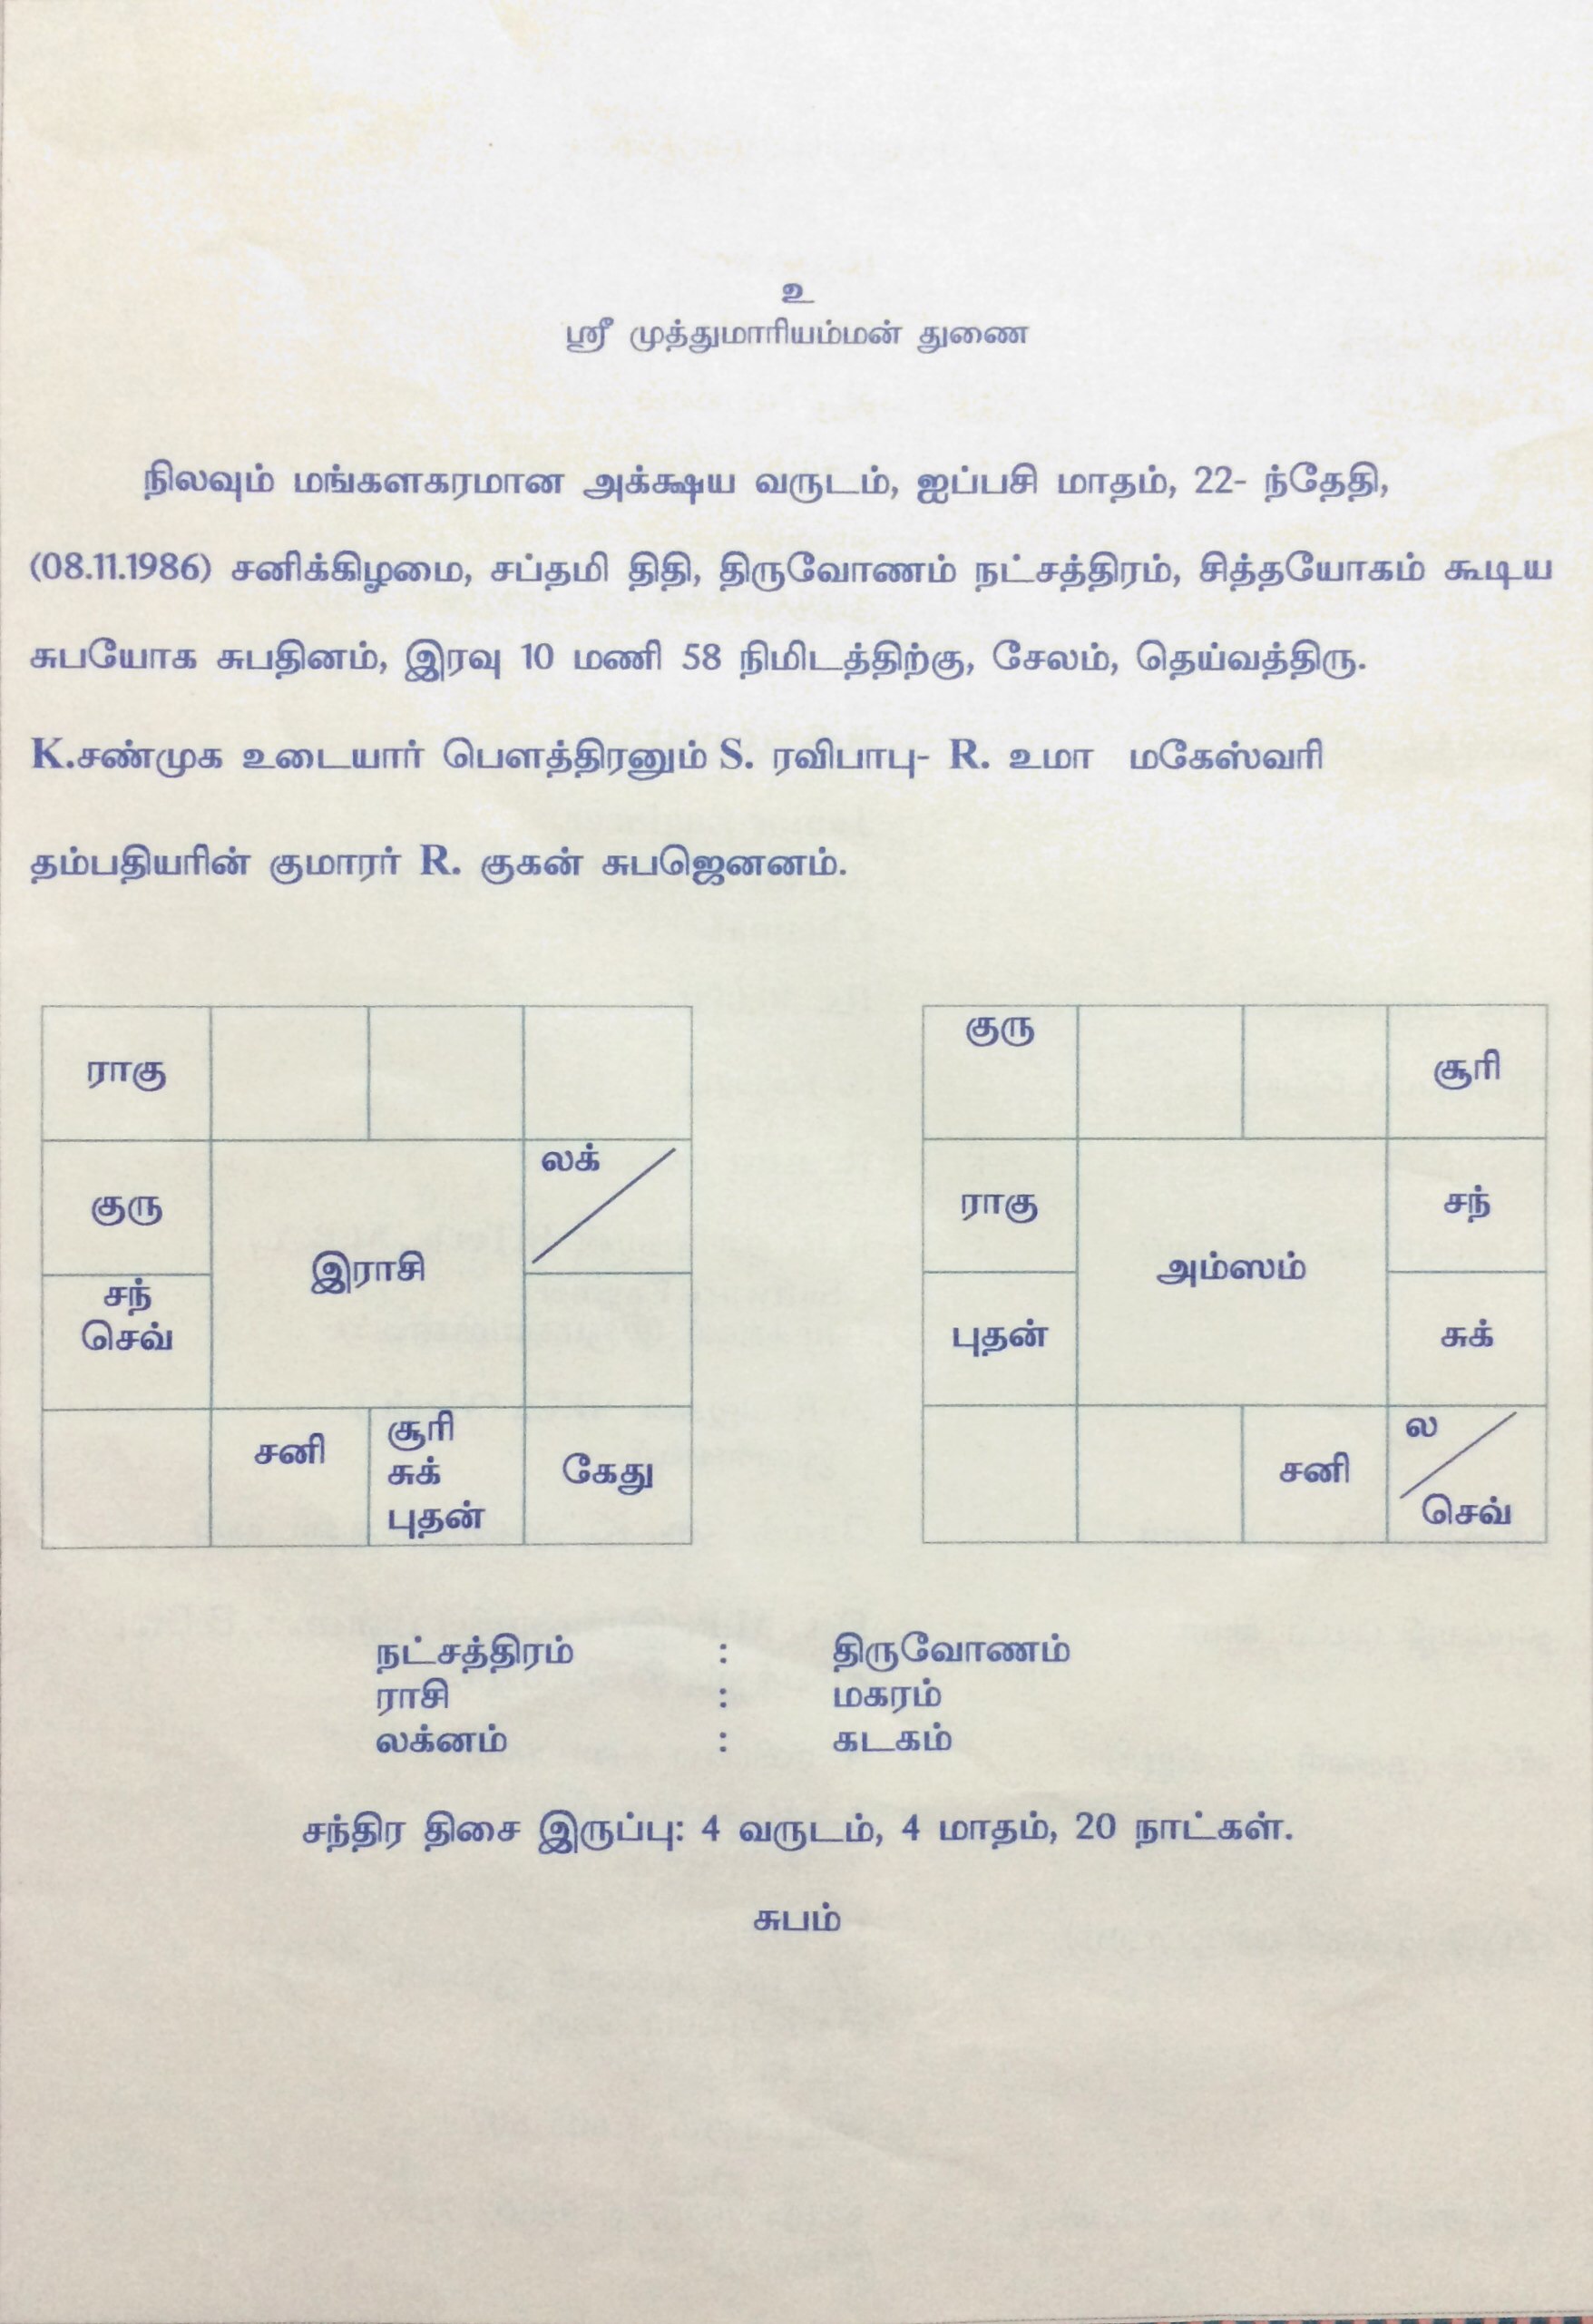 உ
ஸ்ரீ முத்துமாரியம்மன் துணை
நிலவும் மங்களகரமான அக்க்ஷய வருடம், ஐப்பசி மாதம், 22- ந்தேதி,
(08.11.1986) சனிக்கிழமை, சப்தமி திதி, திருவோணம் நட்சத்திரம், சித்தயோகம் கூடிய
சுபயோக சுபதினம், இரவு 10 மணி 58 நிமிடத்திற்கு, சேலம், தெய்வத்திரு.
K.சண்முக உடையார் பௌத்திரனும் S. ரவிபாபு- R. உமா மகேஸ்வரி
தம்பதியரின் குமாரர் R. குகன் சுபஜெனனம்.
ராகு
லக்
குரு
இராசி
சந்
செவ்
சனி
சூரி
சுக்
புதன்
கேது
குரு
சூரி
ராகு
சந்
அம்ஸம்
புதன்
சுக்
சனி
ல
செவ்
நட்சத்திரம் : திருவோணம்
ராசி : மகரம்
லக்னம் : கடகம்
சந்திர திசை இருப்பு: 4 வருடம், 4 மாதம், 20 நாட்கள்.
சுபம்